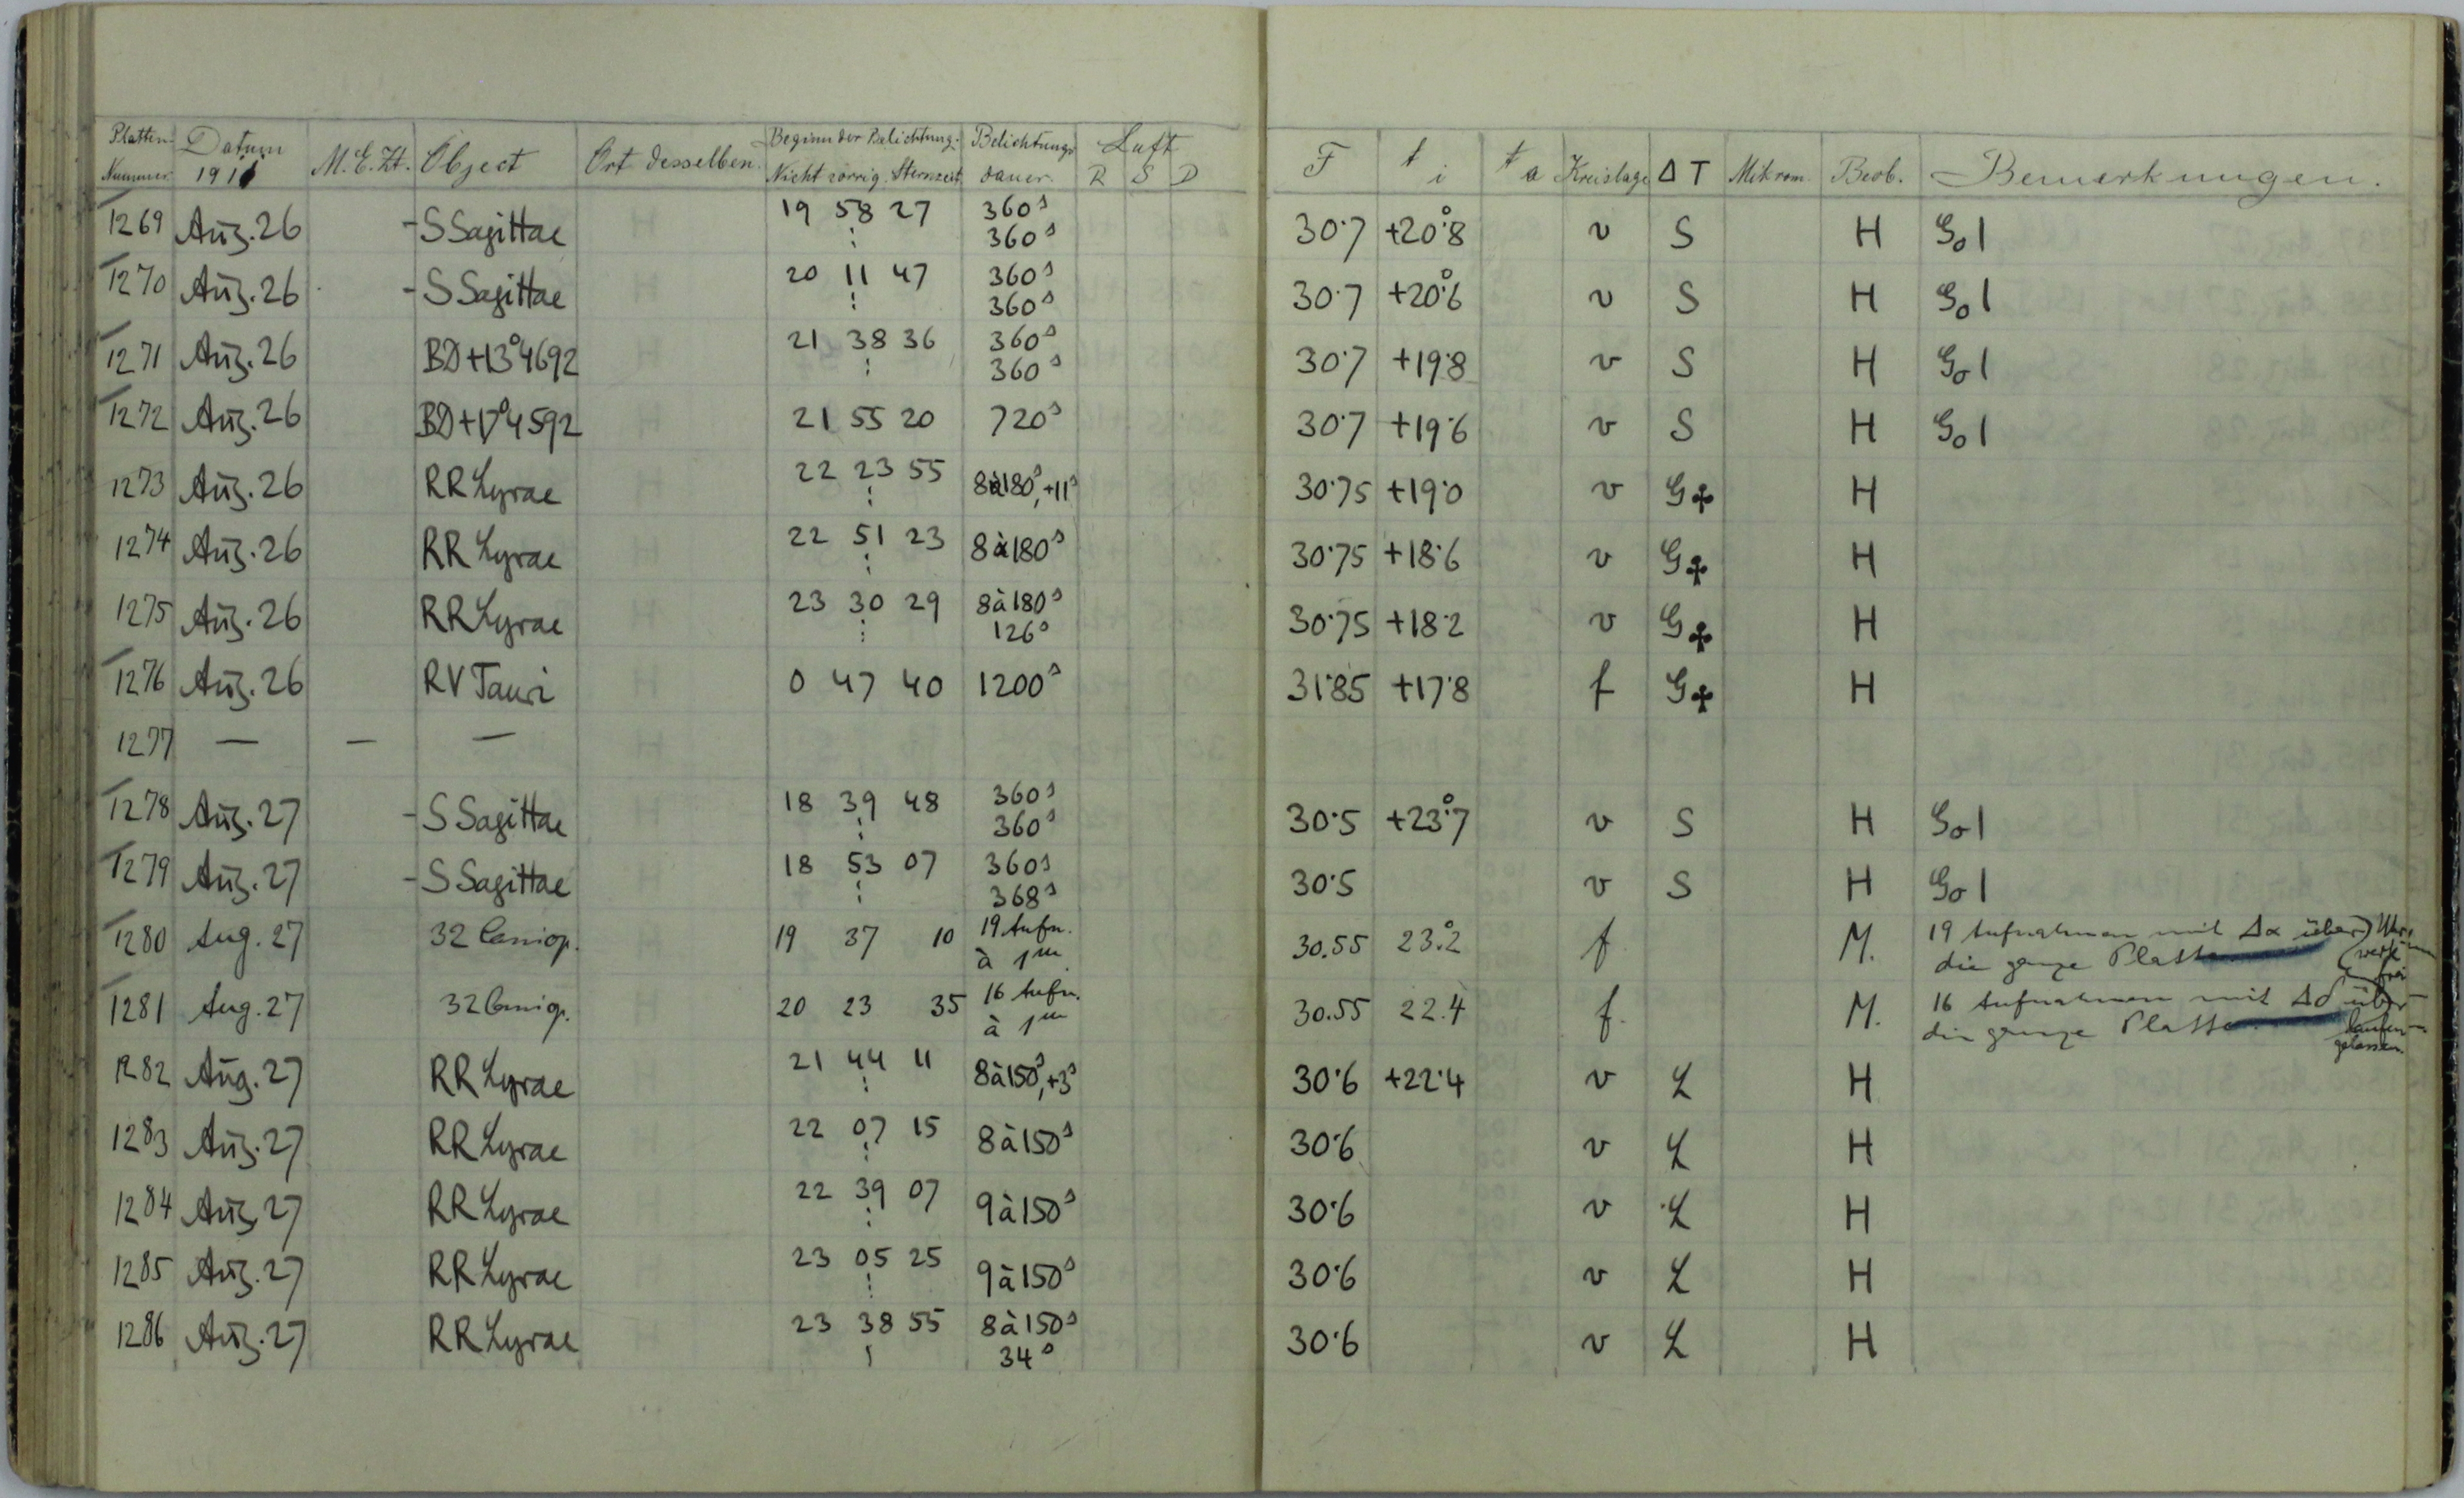 Platten- Nummer Datum 1911 M.E.Zt. Object Ort desselben. Beginn der Belichtung. Nicht Sternzeit Belichtungs dauer. Luft R S D F t i t a Kreislage Δ T Mikrom. Beob. Bemerkungen.
1269 Aug. 26 -S Sagittae 19 58 27 360s 30.7 +20°.8 v S H Go 1
⋮ 360s
1270 Aug. 26 -S Sagittae 20 11 47 360s 30.7 +20°.6 v S H Go 1
⋮ 360s
1271 Aug. 26 BD+13°4692 21 38 36 360s 30.7 +19.8 v S H Go 1
⋮ 360s
1272 Aug. 26 BD+17°4592 21 55 20 720s 30.7 +19.6 v S H Go 1
1273 Aug. 26 RR Lyrae 22 23 55 8à180s,+11s 30.75 +19.0 v G♣ H
1274 Aug. 26 RR Lyrae 22 51 23 8à180s 30.75 +18.6 v G♣ H
1275 Aug. 26 RR Lyrae 23 30 29 8à180s 30.75 +18.2 v G♣ H
⋮ 126s
1276 Aug. 26 RV Tauri 0 47 40 1200s 31.85 +17.8 f G♣ H
1277 — — —
1278 Aug. 27 -S Sagittae 18 39 48 360s 30.5 +23°.7 v S H Go 1
⋮ 360s
1279 Aug. 27 -S Sagittae 18 53 07 360s 30.5 v S H Go 1
⋮ 368s
1280 Aug. 27 32 Cassiop. 19 37 10 19 Aufn. à 1m 30.55 23°.2 f M. 19 Aufnahmen mit Δα über
die ganze Platte
1281 Aug. 27 32 Cassiop. 20 23 35 16 Aufn. à 1m 30.55 22.4 f. M. 16 Aufnahmen mit Δδ über
die ganze Platte
Uhrwerk frei laufen gelassen.
1282 Aug. 27 RR Lyrae 21 44 11 8à150s,+3s 30.6 +22.4 v L H
1283 Aug. 27 RR Lyrae 22 07 15 8à150s 30.6 v L H
1284 Aug. 27 RR Lyrae 22 39 07 9à150s 30.6 v L H
1285 Aug. 27 RR Lyrae 23 05 25 9à150s 30.6 v L H
1286 Aug. 27 RR Lyrae 23 38 55 8à150s 30.6 v L H
34s